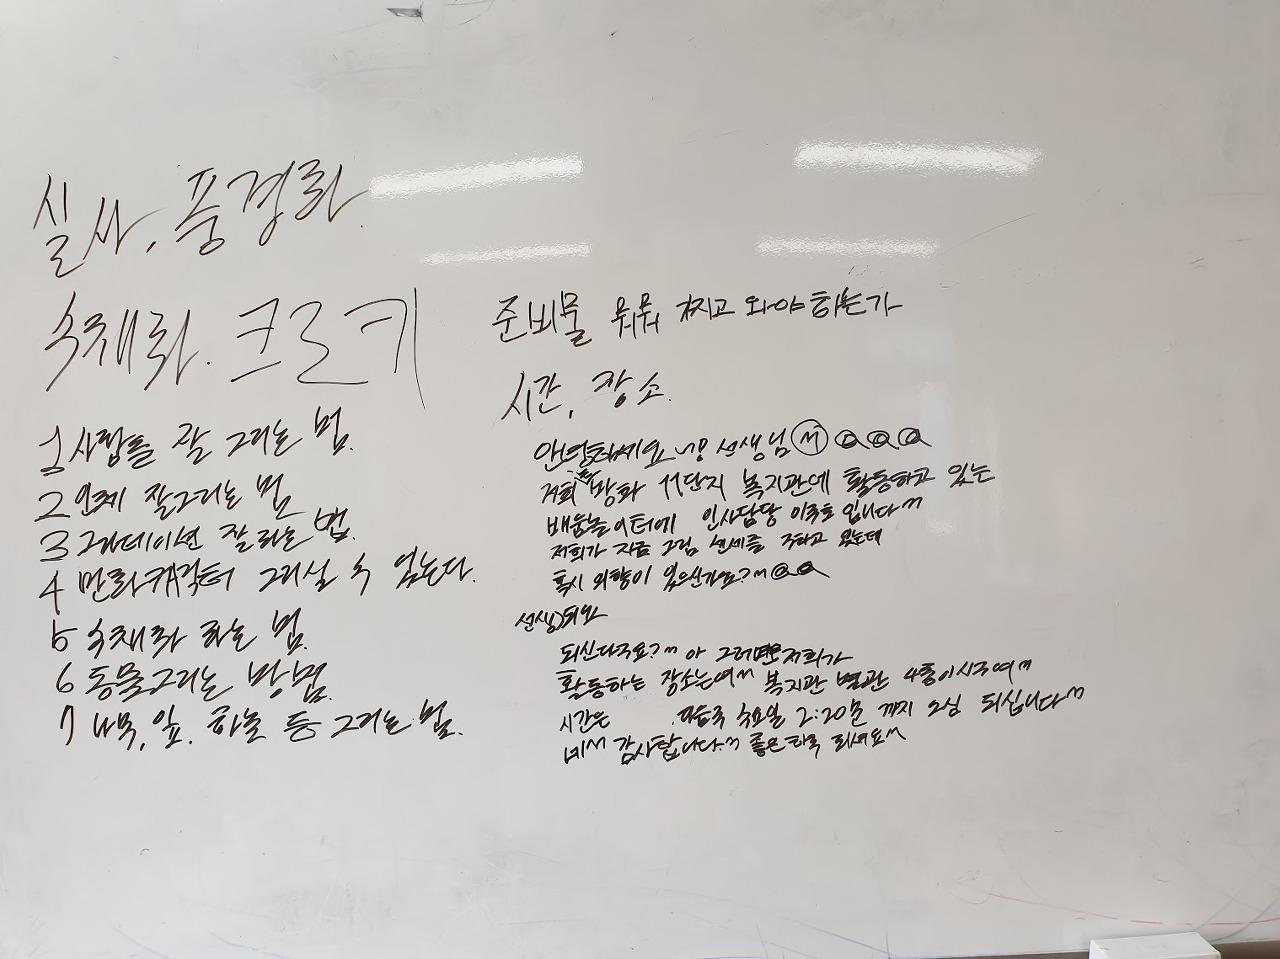 실사, 풍경화.
수채화. 크로키
1 사람을 잘 그리는 법.
2 인체 잘그리는 법
3 그라데이션 잘하는 법.
4 만화캐릭터 그리실 수 있는다.
5 수채화 하는 법.
6 동물그리는 방법.
7 나무, 잎, 하늘 등 그리는 법.
준비물 뭐뭐 챙기고 와야 하는가
시간, 장소.
안녕하세요 선생님
저희는 방화 11단지 복지관에 활동하고 있는
배움놀이터에 인사담당 입니다^^
저희가 지금 그림 선생을 구하고 있는데
혹시 의향이 있으신가요?^^
선생)되요
되신다구요?^^ 아 그러면은 저희가
활동하는 장소는여^^ 복지관 별관 4층이시구여^^
시간은 다음주 수요일 2:20분 까지 오심 되십니다^^
네^^ 감사합니다.^^ 좋은하루 되세요^^